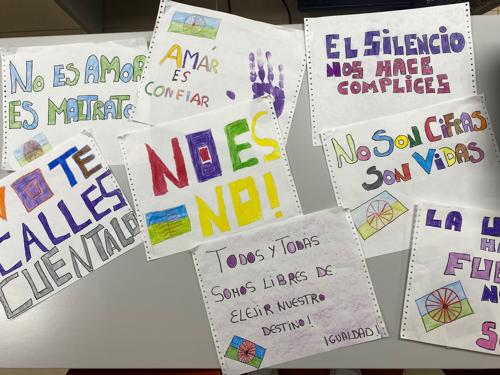 NO ES AMOR
ES MALTRATO
AMAR
ES
CONFIAR
EL SILENCIO
NOS HACE
COMPLICES
NO ES
NO!
NO SON CIFRAS
SON VIDAS
NO TE
CALLES
CUENTALO
TODOS Y TODAS
SOMOS LIBRES DE
ELEJIR NUESTRO
DESTINO!
IGUALDAD!
LA U
HA
FUE
NO
S